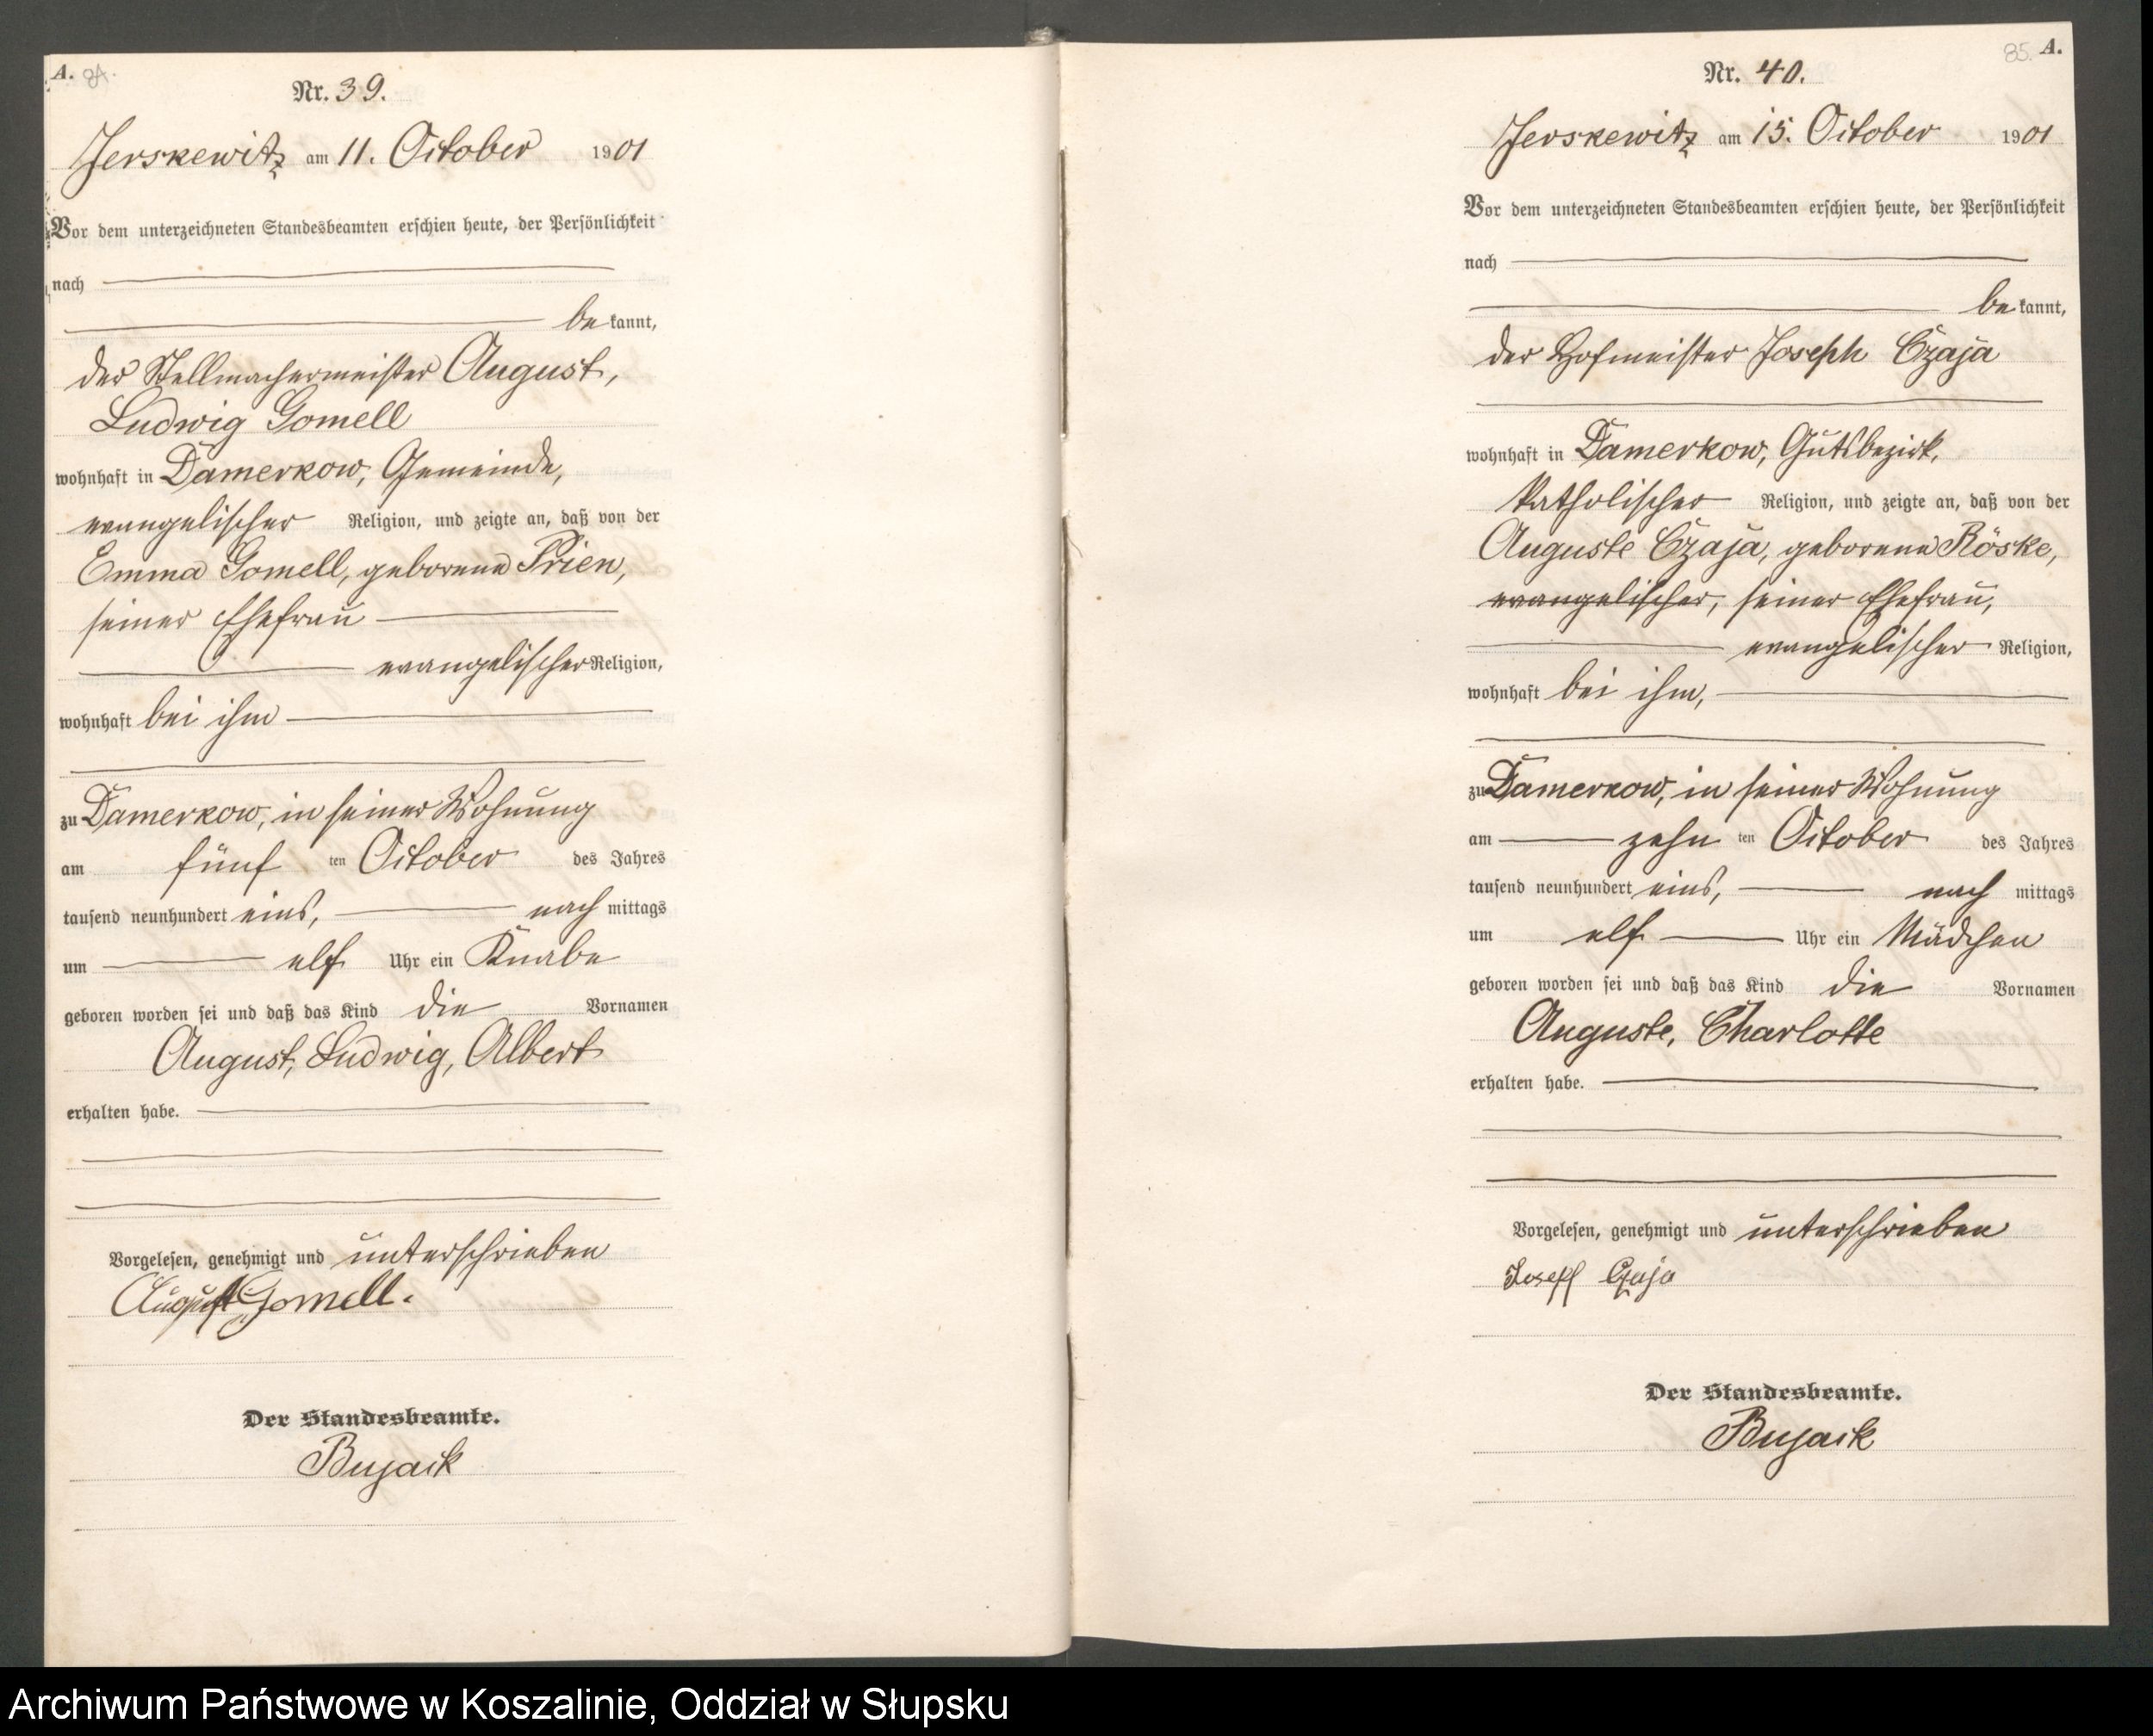 A. 84.
Nr. 39.
Jerskewitz am 11. October 1901
Vor dem unterzeichneten Standesbeamten erschien heute, der Persönlichkeit
nach
bekannt,
der Stellmachermeister August,
Ludwig Gomell
wohnhaft in Damerkow, Gemeinde,
evangelischer Religion, und zeigte an, daß von der
Emma Gomell, geborene Prien,
seiner Ehefrau
evangelischer Religion,
wohnhaft bei ihm
zu Damerkow, in seiner Wohnung
am fünf ten October des Jahres
tausend neunhundert eins, nach mittags
um elf Uhr ein Knabe
geboren worden sei und daß das Kind die Vornamen
August, Ludwig, Albert
erhalten habe.
Vorgelesen, genehmigt und unterschrieben
August Gomell.
Der Standesbeamte.
Bujack
85. A.
Nr. 40.
Jerskewitz am 15. October 1901
Vor dem unterzeichneten Standesbeamten erschien heute, der Persönlichkeit
nach
bekannt,
der Hofmeister Joseph Czaja
wohnhaft in Damerkow, Gutsbezirk,
katholischer Religion, und zeigte an, daß von der
Auguste Czaja, geborene Röske,
evangelischer, seiner Ehefrau,
evangelischer Religion,
wohnhaft bei ihm,
zu Damerkow, in seiner Wohnung
am zehn ten October des Jahres
tausend neunhundert eins, nach mittags
um elf Uhr ein Mädchen
geboren worden sei und daß das Kind die Vornamen
Auguste, Charlotte
erhalten habe.
Vorgelesen, genehmigt und unterschrieben
Joseph Czaja
Der Standesbeamte.
Bujack
Archiwum Państwowe w Koszalinie, Oddział w Słupsku